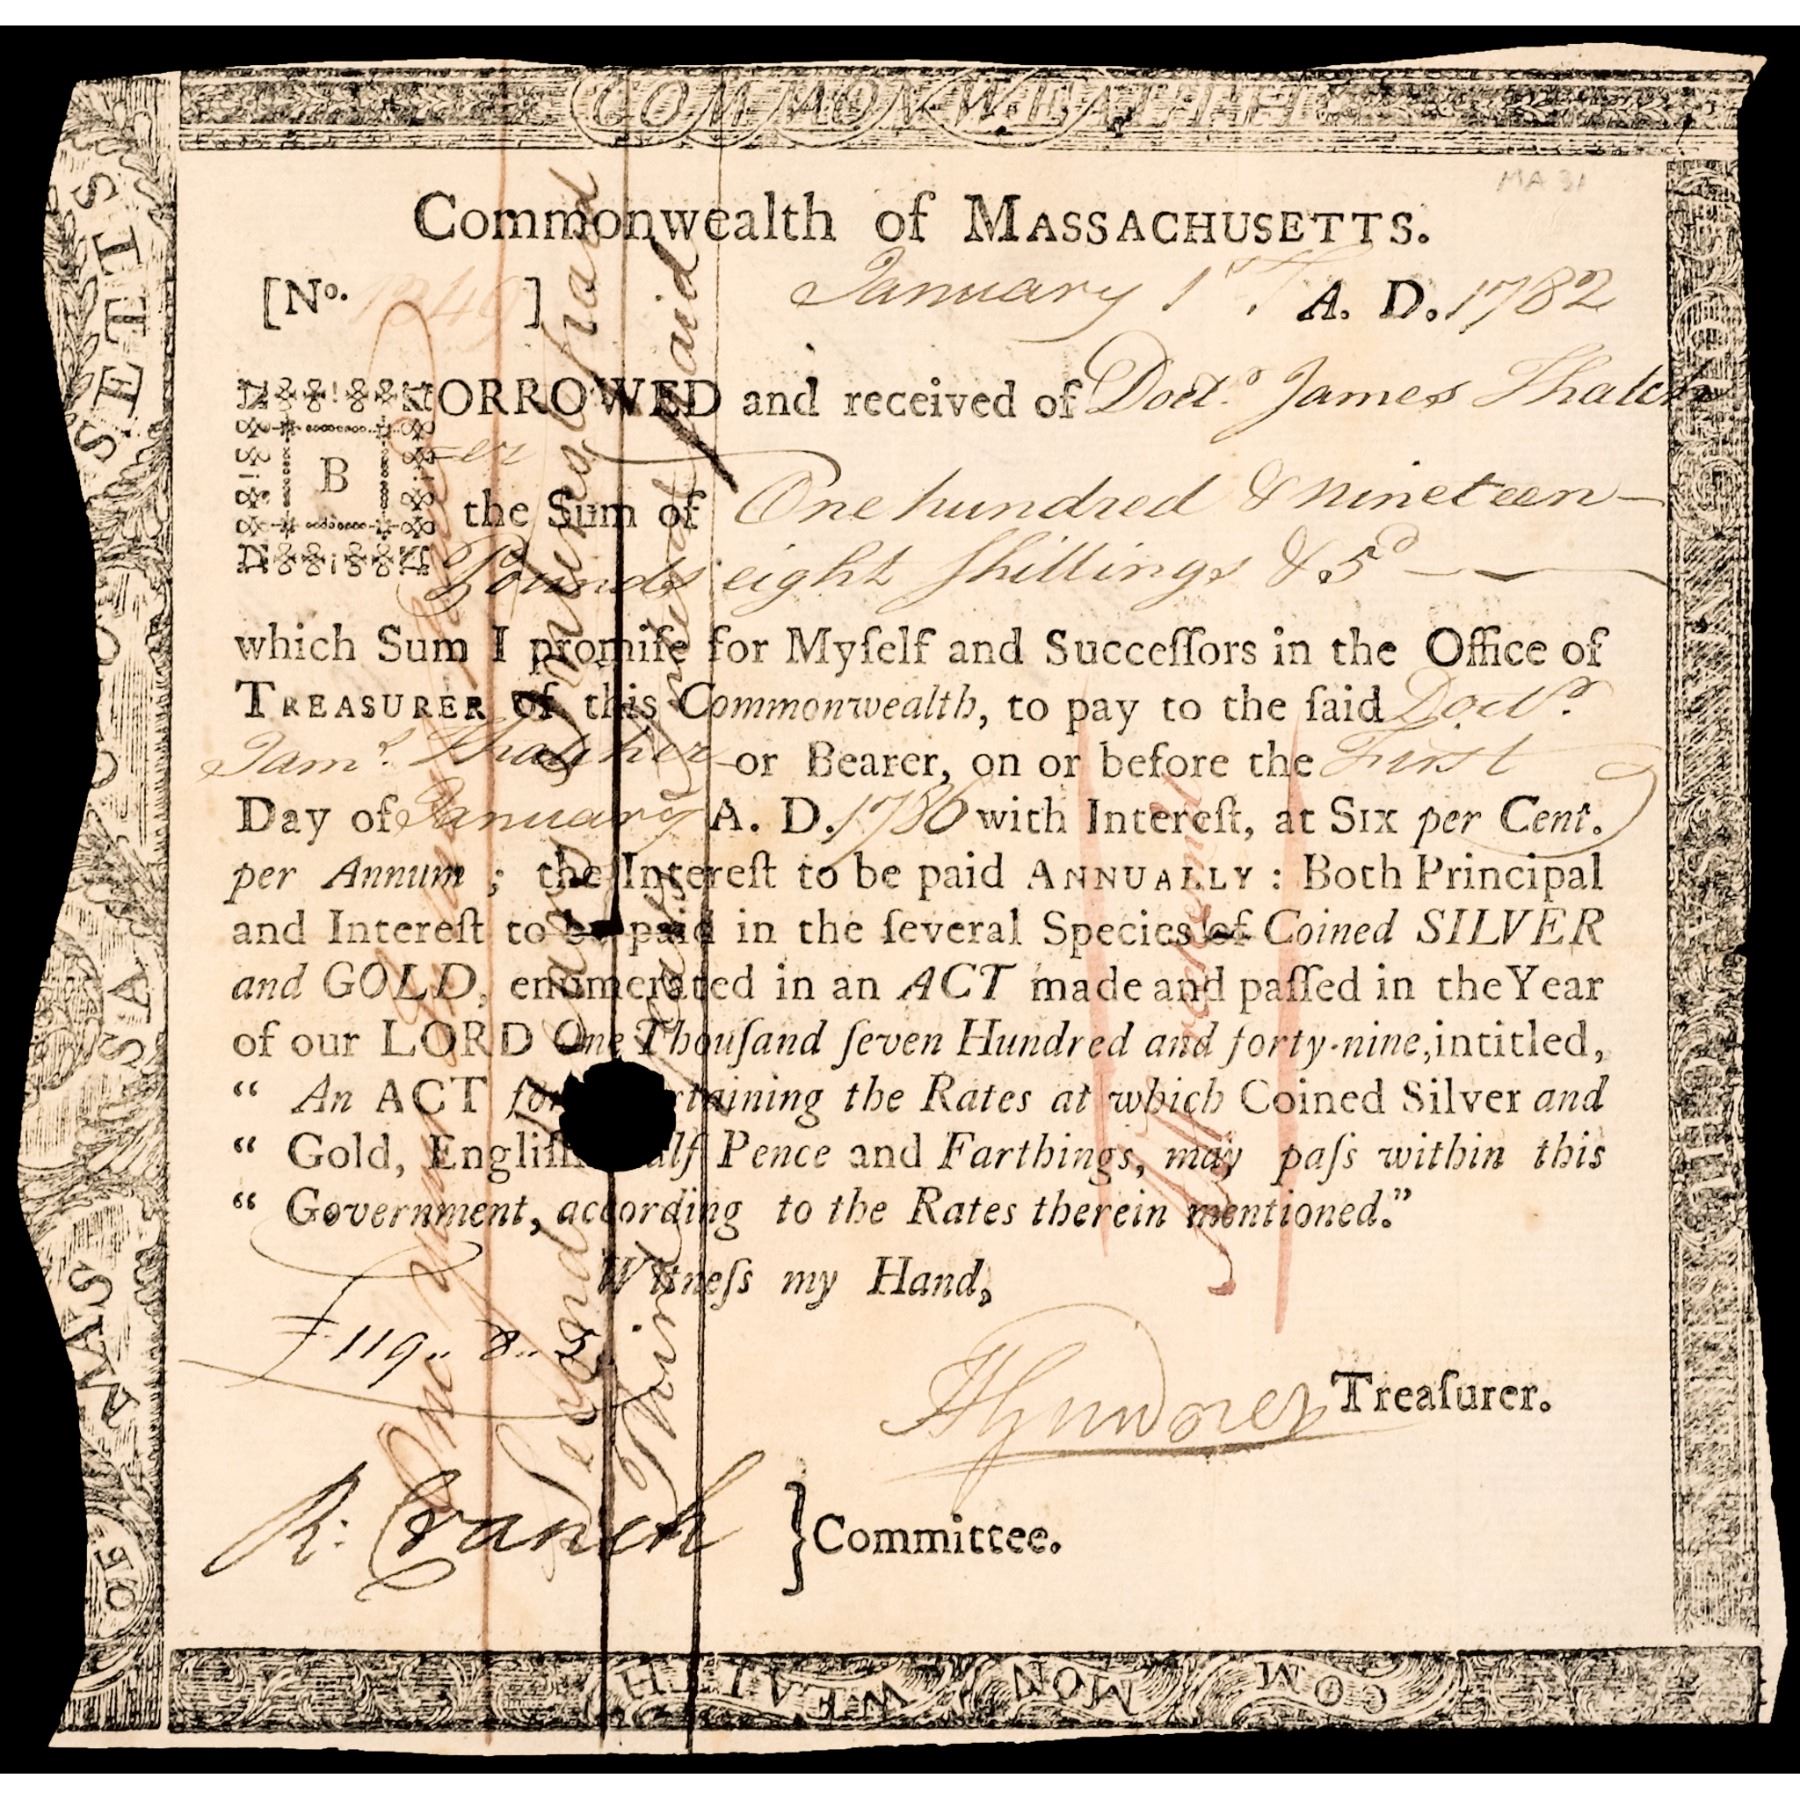 COMMONWEALTH
MA 31
Commonwealth of MASSACHUSETTS.
[No. 1346 ] January 1st A. D. 1782
BORROWED and received of Doctr. James Thatch
=er
the Sum of One hundred & nineteen
Pounds eight ſhillings & 5d
which Sum I promiſe for Myſelf and Succeſſors in the Office of
TREASURER of this Commonwealth, to pay to the ſaid Doctr.
Jams. Thatcher or Bearer, on or before the First
Day of January A. D. 1786 with Intereſt, at SIX per Cent.
per Annum ; the Intereſt to be paid ANNUALLY : Both Principal
and Intereſt to be paid in the ſeveral Species of Coined SILVER
and GOLD, enumerated in an ACT made and paſſed in the Year
of our LORD One Thouſand ſeven Hundred and forty-nine, intitled,
“ An ACT for aſcertaining the Rates at which Coined Silver and
“ Gold, Engliſh Half Pence and Farthings, may paſs within this
“ Government, according to the Rates therein mentioned.”
Witneſs my Hand,
£119.. 8.. 5
HGardner Treaſurer.
R: Cranch } Committee.
One year's
Second
Third
paid
OF MASSACHUSETTS
COMMONWEALTH